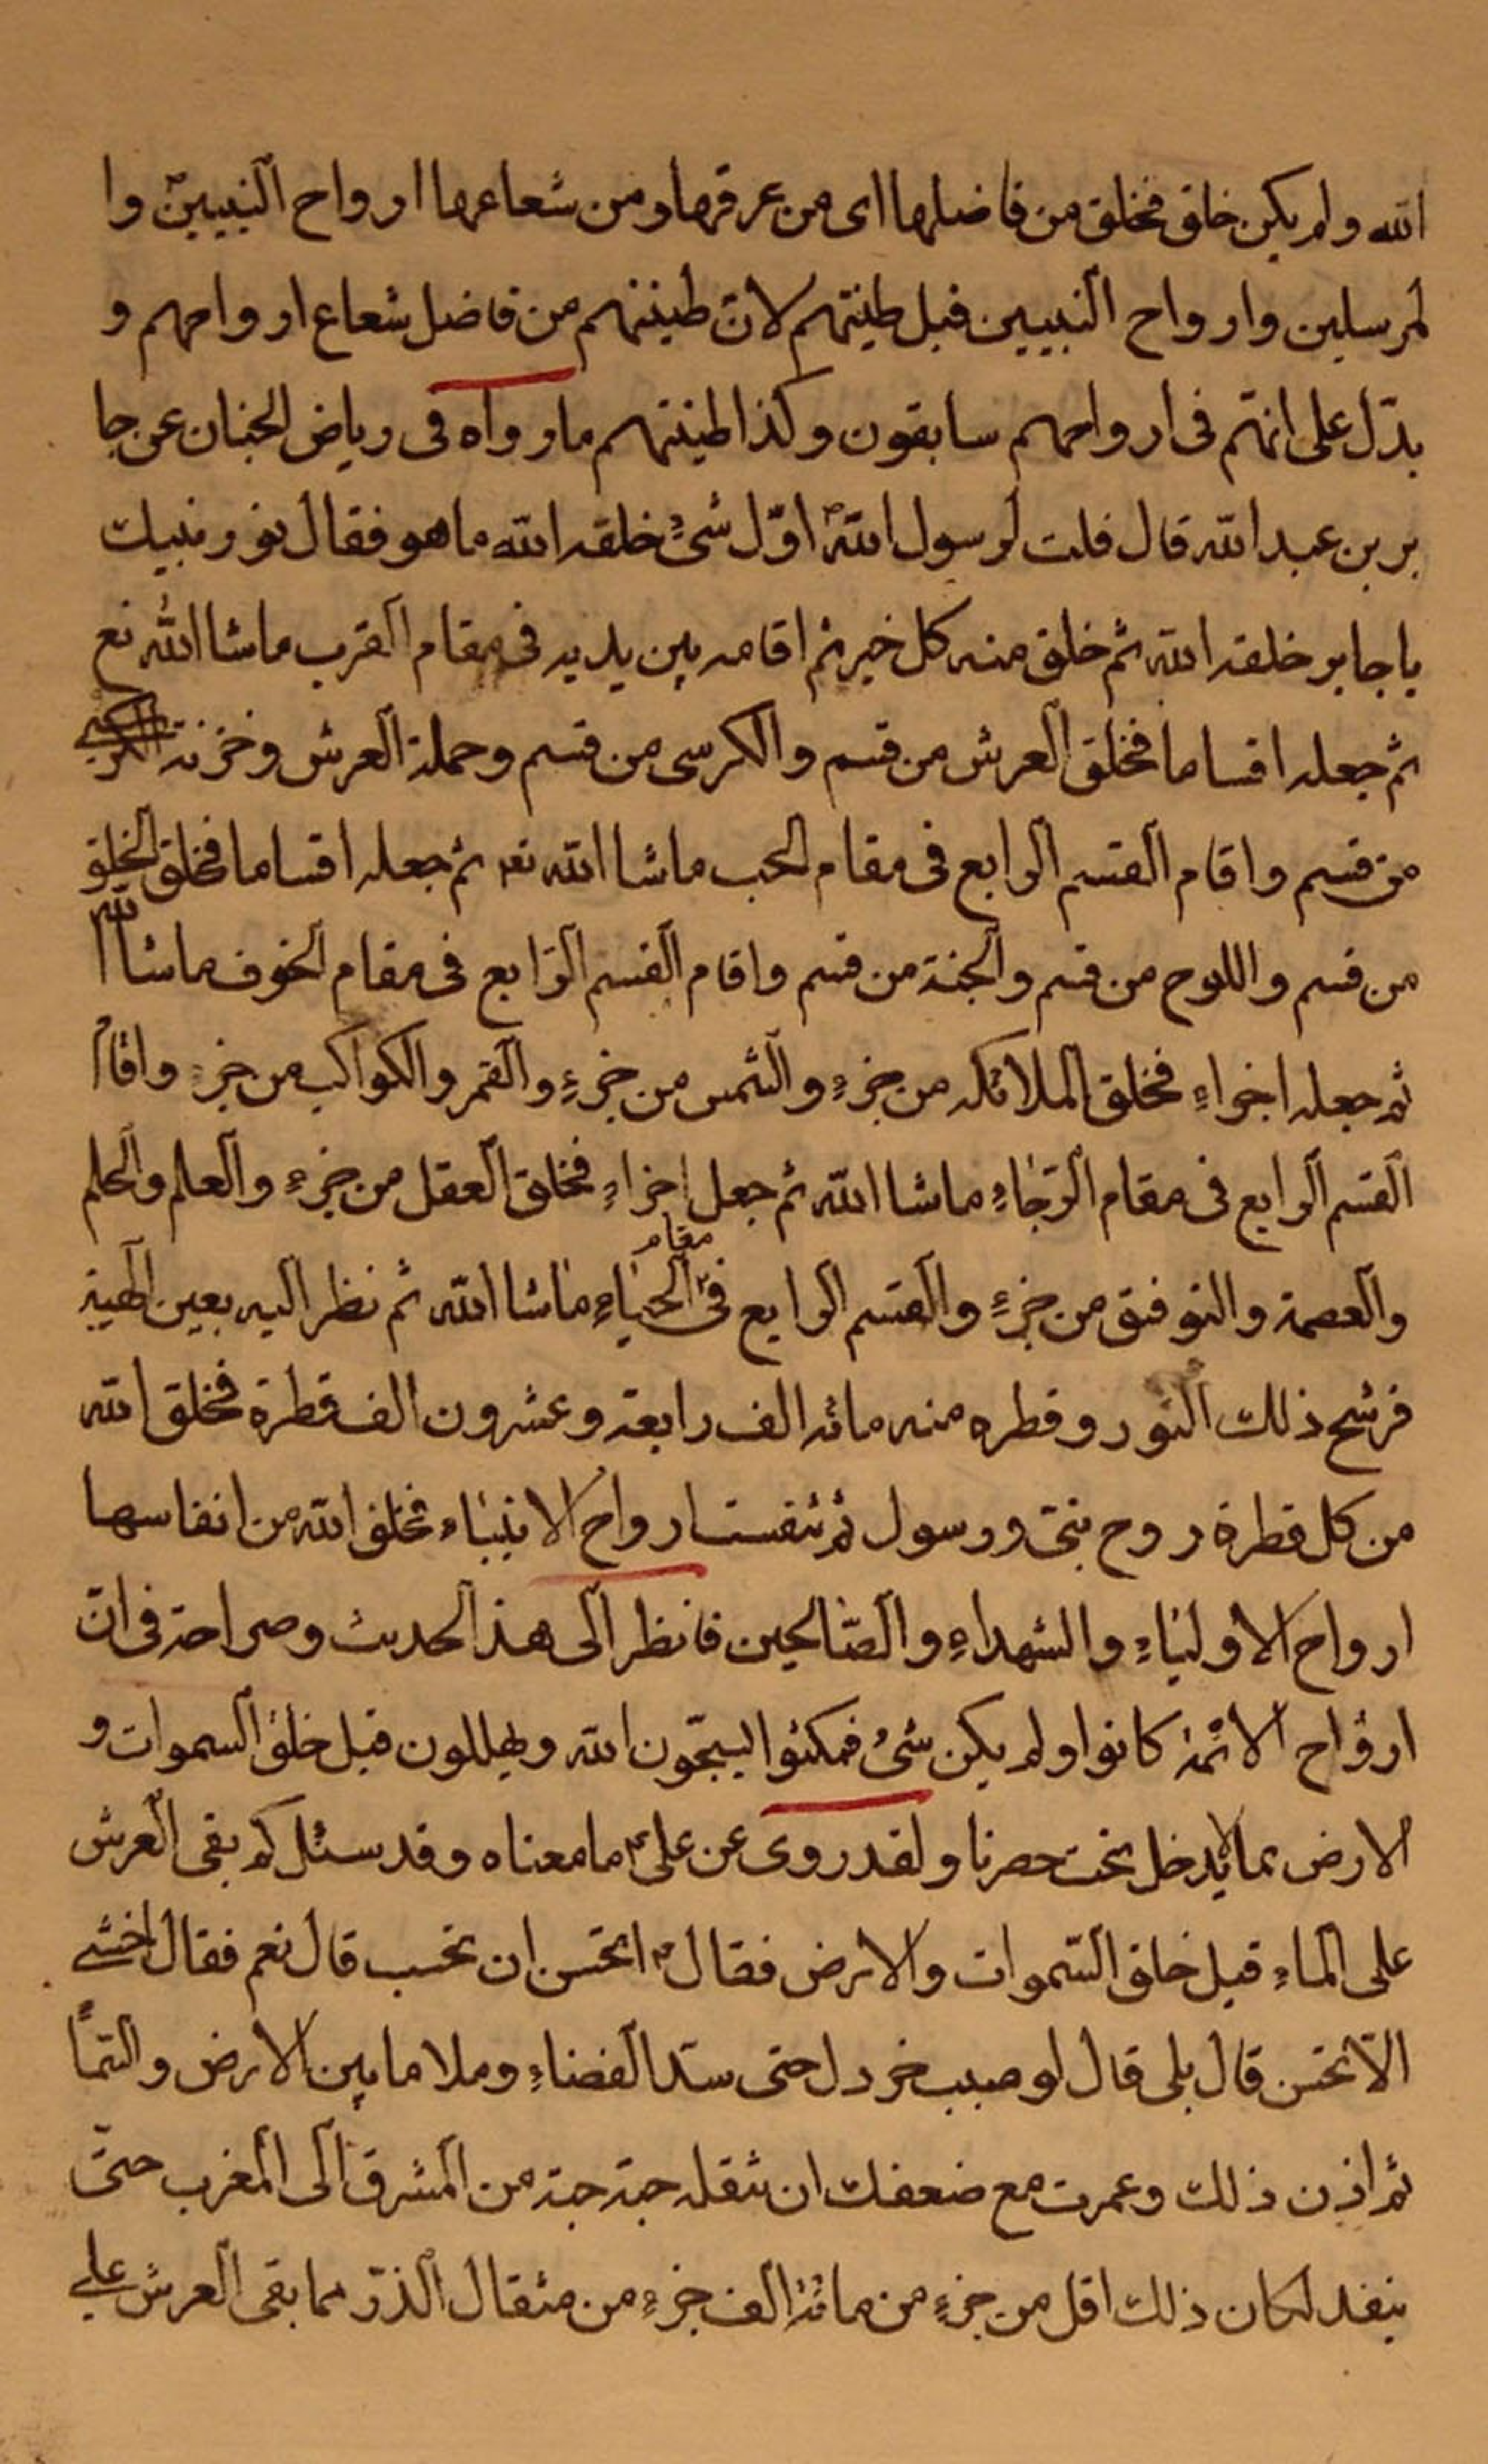 الله ولم يكن خلق فخلق من فاضلها اى من عرقها ومن شعاعها ارواح النبيين وا
لمرسلين وارواح النبيين قبل طينتهم لان طينتهم من فاضل شعاع ارواحهم و
يدّل على انهّم فى ارواحهم سابقون وكذا طينتهم ما رواه فى رياض الجنان عن جا
بر بن عبد الله قال قلت لرسول الله ص اوّل شىءٍ خلقه الله ما هو فقال نور نبيك
يا جابر خلقه الله ثم خلق منه كل خير ثم اقامه بين يديه فى مقام القرب ماشا الله تع
ثم جعله اقساما فخلق العرش من قسم والكرسى من قسم وحملة العرش وخزنة الكرسى
من قسم واقام القسم الرابع فى مقام الحب ماشا الله تع ثم جعله اقساما فخلق الخلق
من قسم واللوح من قسم والجنة من قسم واقام القسم الرّابع فى مقام الخوف ماشا الله
ثم جعله اجزاءٍ فخلق الملائكه من جزءٍ والشمس من جزءٍ والقمر والكواكب من جزءٍ واقام
القسم الرابع فى مقام الرّجاءِ ماشا الله ثم جعل اجزاءٍ فخلق العقل من جزءٍ والعلم والحلم
والعصمة والتوفيق من جزءٍ والقسم الرابع فى مقام الحياءِ ماشا الله ثم نظر اليه بعين الهيبة
فرشح ذلك النور وقطره منه مائه الف رابعة وعشرون الف قطرة فخلق الله
من كل قطرة روح نبىّ ورسول ثم تنفست ارواح الانبياء فخلق الله من انفاسها
ارواح الاولياءِ والشهداءِ والصّالحين فانظر الى هذا الحديث وصراحته فى انّ
ارواح الائمة كانوا ولم يكن شىءُ فمكثوا يسبّحون الله ويهللون قبل خلق السموات و
الارض بما لا يدخل تحت حصرنا ولقد روى عن على ع ما معناه وقد سئل كم بقى العرش
على الماءِ قبل خلق السّموات والارض فقال ع اتحسن ان تحسب قال نعم فقال اخشى
الاّ تحسن قال بلى قال لو صبب خردل حتى سدّ الفضاءِ وملا ما بين الارض والسّماً
ثم اذن ذلك وعمرت مع ضعفك ان تنقله حبّة حبّة من المشرق الى المغرب حتىّ
ينفد لكان ذلك اقل من جزءٍ من مائة الف جزءٍ من مثقال الذرّ مما بقى العرش على